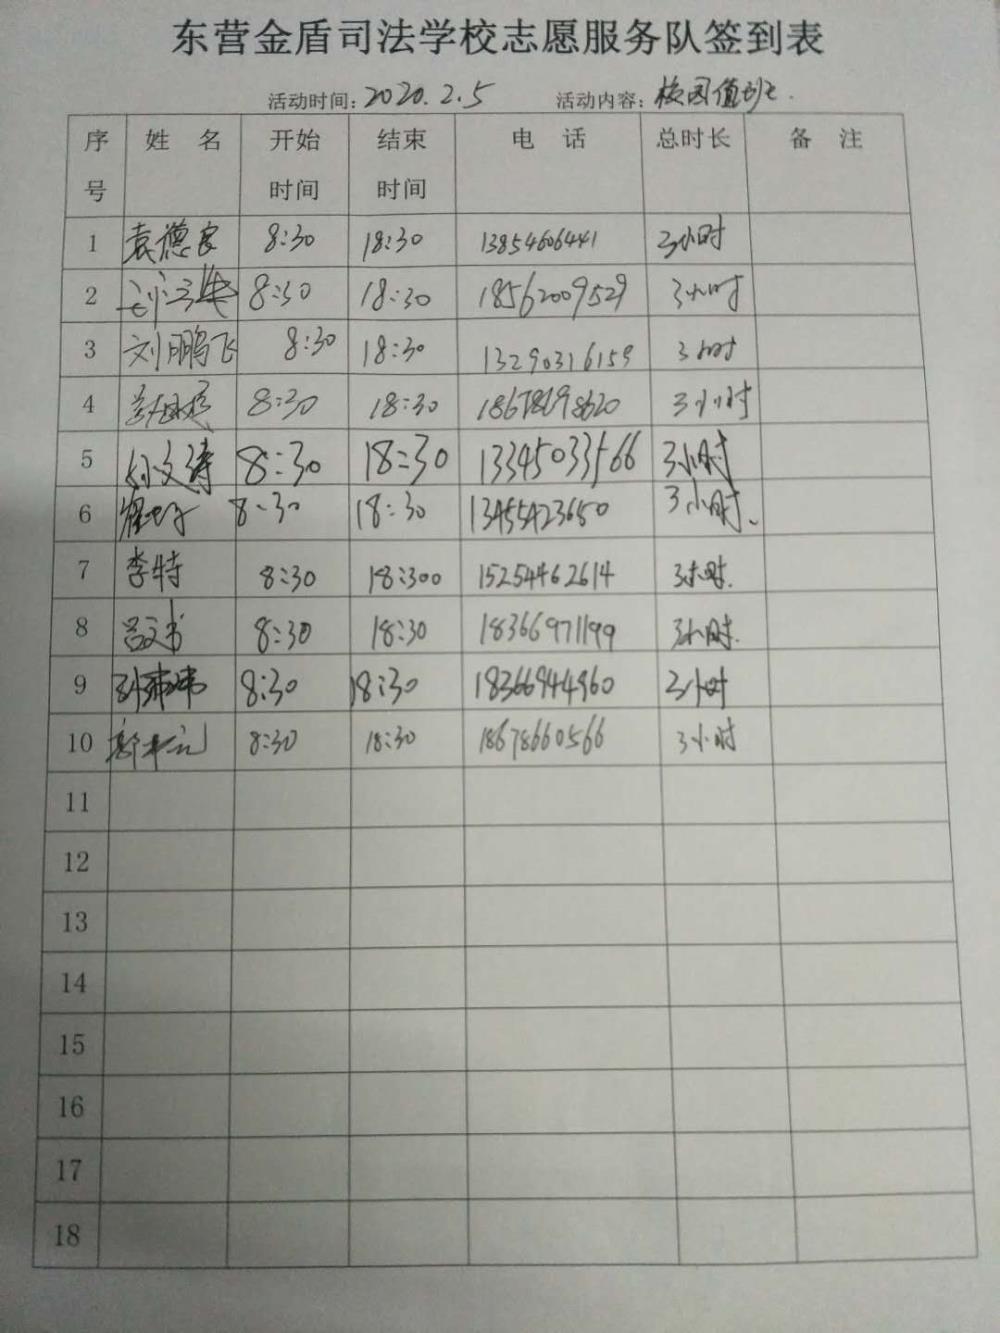 东营金盾司法学校志愿服务队签到表
活动时间：2020.2.5 活动内容：校园值班.
序号 姓 名 开始时间 结束时间 电 话 总时长 备 注
1 袁德良 8:30 18:30 13854606441 3小时
2 8:30 18:30 18562009529 3小时
3 刘鹏飞 8:30 18:30 13290316159 3小时
4 8:30 18:30 3小时
5 孙文涛 8:30 18:30 13345033566 3小时
6 8:30 18:30 13455423650 3小时.
7 李特 8:30 18:300 15254462614 3小时.
8 吕文书 8:30 18:30 18366971199 3小时.
9 8:30 18:30 18366944960 3小时
10 8:30 18:30 18678660566 3小时
11
12
13
14
15
16
17
18